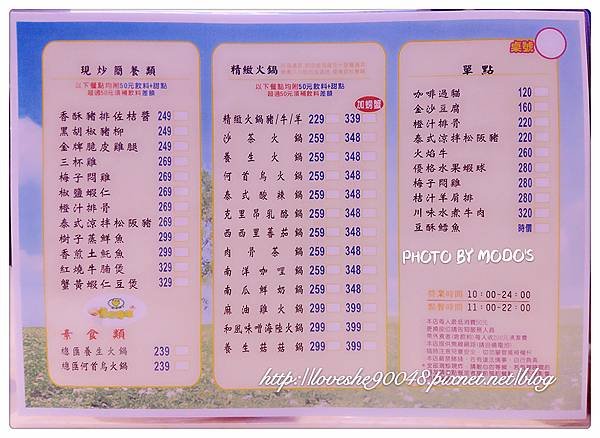 桌號
現炒簡餐類
以下餐點均附50元飲料+甜點
超過50元須補飲料差額
香酥豬排佐桔醬 249
黑胡椒豬柳 249
金牌脆皮雞腿 249
三杯雞 269
梅子悶雞 269
椒鹽蝦仁 269
橙汁排骨 269
泰式涼拌松阪豬 269
樹子蒸鮮魚 299
香煎土魠魚 299
紅燒牛腩煲 329
蟹黃蝦仁豆煲 329
素食類
總匯養生火鍋 239
總匯何首烏火鍋 239
精緻火鍋
以下餐點均附50元飲料+甜點
超過50元須補飲料差額
加螃蟹
精緻火鍋豬/牛/羊 229 339
沙茶火鍋 259 348
養生火鍋 259 348
何首烏火鍋 259 348
泰式酸辣鍋 259 348
克里昂乳酪鍋 259 348
西西里蕃茄鍋 259 348
肉骨茶鍋 259 348
南洋咖哩鍋 259 348
南瓜鮮奶鍋 259 348
麻油雞火鍋 299 399
和風味噌海陸火鍋 299 399
養生菇菇鍋 299 399
單點
咖啡過貓 120
金沙豆腐 160
橙汁排骨 220
泰式涼拌松阪豬 220
火焰牛 260
優格水果蝦球 280
梅子悶雞 280
桔汁羊肩排 280
川味水煮牛肉 320
豆酥鱈魚 時價
PHOTO BY MODO'S
營業時間 10:00-24:00
點餐時間 11:00-22:00
本店每人最低消費50元
http://loveshe90048.pixnet.net/blog